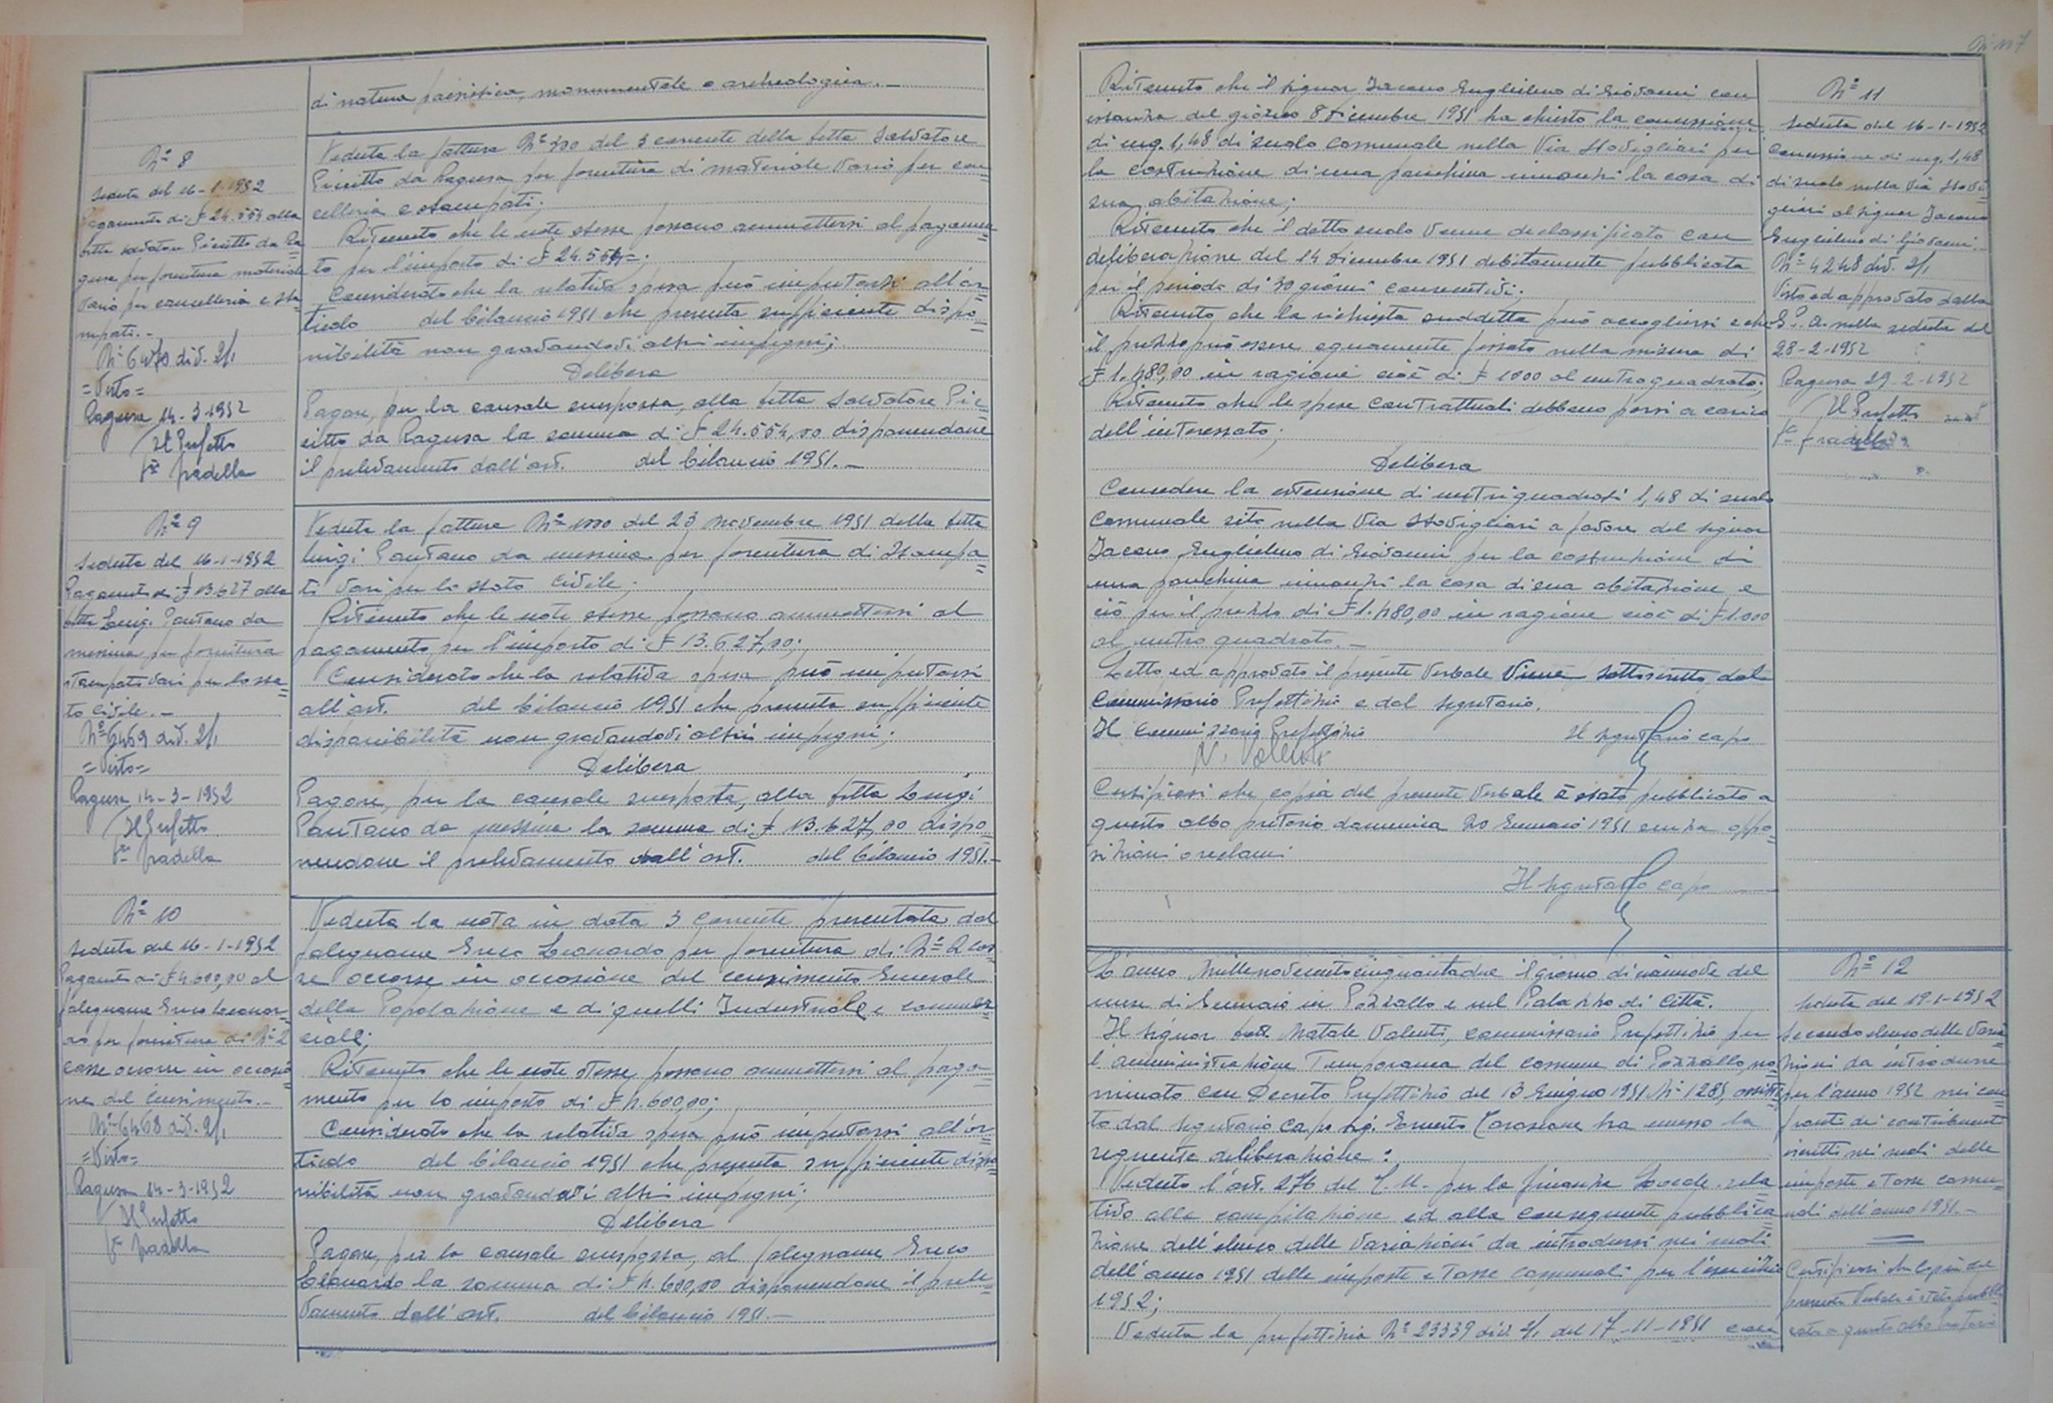 di natura paesistica, monumentale o archeologica.-
N° 8
Seduta del 16-1-1952
Pagamento di £ 24.554 alla
ditta Salvatore Piccitto da Ra
gusa per fornitura materiale
vario per cancelleria e sta
mpati.-
N° 6470 div. 2/1
=Visto=
Ragusa 14-3-1952
Il Prefetto
Fto Pradella
Veduta la fattura N° del 3 corrente della ditta Salvatore
Piccitto da Ragusa per fornitura di materiale vario per can=
celleria e stampati;
Ritenuto che le note stesse possono ammettersi al pagamen=
to per l'importo di £ 24.554=;
Considerato che la relativa spesa può imputarsi all'ar=
ticolo del bilancio 1951 che presenta sufficiente dispo=
nibilità non gravandovi altri impegni;
Delibera
Pagare, per la causale suesposta, alla ditta Salvatore Pic=
citto da Ragusa la somma di £ 24.554,00 disponendone
il prelevamento dall'art. del bilancio 1951.-
N° 9
Seduta del 16-1-1952
Pagamento di £ 13.627 alla
ditta Luigi Pantano da
Messina per fornitura
stampati vari per lo sta=
to civile.-
N° 6469 div. 2/1
=Visto=
Ragusa 14-3-1952
Il Prefetto
Fto Pradella
Veduta la fattura N° del 23 novembre 1951 della ditta
Luigi Pantano da Messina per fornitura di stampa=
ti vari per lo stato civile;
Ritenuto che le note stesse possono ammettersi al
pagamento per l'importo di £ 13.627,00;
Considerato che la relativa spesa può imputarsi
all'art. del bilancio 1951 che presenta sufficiente
disponibilità non gravandovi altri impegni;
Delibera
Pagare, per la causale suesposta, alla ditta Luigi
Pantano da Messina la somma di £ 13.627,00 dispo=
nendone il prelevamento dall'art. del bilancio 1951.-
N° 10
Seduta del 16-1-1952
Pagamento di £ 4.600,00 al
falegname Greco Leonar=
do per fornitura di N° 2
casse occorse in occasio=
ne del Censimento.-
N° 6468 div. 2/1
=Visto=
Ragusa 14-3-1952
Il Prefetto
Fto Pradella
Veduta la nota in data 3 corrente presentata dal
falegname Greco Leonardo per fornitura di N° 2 cas=
se occorse in occasione del censimento Generale
della Popolazione e di quelli Industriale e commer=
ciale;
Ritenuto che le note stesse possono ammettersi al paga=
mento per lo importo di £ 4.600,00;
Considerato che la relativa spesa può imputarsi all'ar=
ticolo del bilancio 1951 che presenta sufficiente dispo=
nibilità non gravandovi altri impegni;
Delibera
Pagare, per la causale suesposta, al falegname Greco
Leonardo la somma di £ 4.600,00 disponendone il prele=
vamento dall'art. del bilancio 1951.-
Ritenuto che il signor Iacono Guglielmo di Giovanni con
istanza del giorno 8 Dicembre 1951 ha chiesto la concessione
di mq. 1,48 di suolo comunale nella Via Stovigliari per
la costruzione di una panchina innanzi la casa di
sua abitazione;
Ritenuto che il detto suolo venne declassificato con
deliberazione del 14 Dicembre 1951 debitamente pubblicata
per il periodo di 30 giorni consecutivi;
Ritenuto che la richiesta suddetta può accogliersi e che
il prezzo può essere equamente fissato nella misura di
£ 1.480,00 in ragione cioè di £ 1000 al metro quadrato;
Ritenuto che le spese contrattuali debbono porsi a carico
dell'interessato;
Delibera
Concedere la estensione di metri quadrati 1,48 di suolo
Comunale sito nella Via Stovigliari a favore del signor
Iacono Guglielmo di Giovanni per la costruzione di
una panchina innanzi la casa di sua abitazione e
ciò per il prezzo di £ 1.480,00 in ragione cioè di £ 1.000
al metro quadrato.-
Letto ed approvato il presente verbale viene sottoscritto dal
Commissario Prefettizio e dal Segretario.
Il Commissario Prefettizio Il Segretario capo
N. Valenti
Certificasi che copia del presente verbale è stato pubblicato a
questo albo pretorio domenica 20 Gennaio 1951 senza oppo=
sizioni o reclami
Il Segretario capo
N° 11
Seduta del 16-1-1952
Concessione di mq. 1,48
di suolo nella Via Stovi
gliari al signor Iacono
Guglielmo di Giovanni.
N° 4248 div. 2/1
Visto ed approvato dalla
G.P.A. nella seduta del
28-2-1952
Ragusa 29-2-1952
Il Prefetto
Fto Pradella
L'anno Millenovecentocinquantadue il giorno diciannove del
mese di Gennaio in Pozzallo e nel Palazzo di Città.
Il Signor Dott. Natale Valenti, Commissario Prefettizio per
l'amministrazione Temporanea del comune di Pozzallo, no=
minato con Decreto Prefettizio del 13 Giugno 1951 N° 1285, assisti=
to dal Segretario Capo Sig. Ernesto ha emesso la
seguente deliberazione:
Veduto l'art. 276 del T.U. per la finanza Locale rela=
tivo alla compilazione ed alla conseguente pubblica=
zione dell'elenco delle variazioni da introdursi nei ruoli
dell'anno 1951 delle imposte e tasse comunali per l'esercizio
1952;
Veduta la prefettizia N° 23339 div. 2/1 del 17-11-1951 con
N° 12
Seduta del 19-1-1952
Secondo elenco delle varia=
zioni da introdurre
per l'anno 1952 nei con
fronti dei contribuenti
iscritti nei ruoli delle
imposte e tasse comu=
nali dell'anno 1951.-
Certificasi che copia del
presente verbale è stato pubbli=
cato a questo albo pretorio